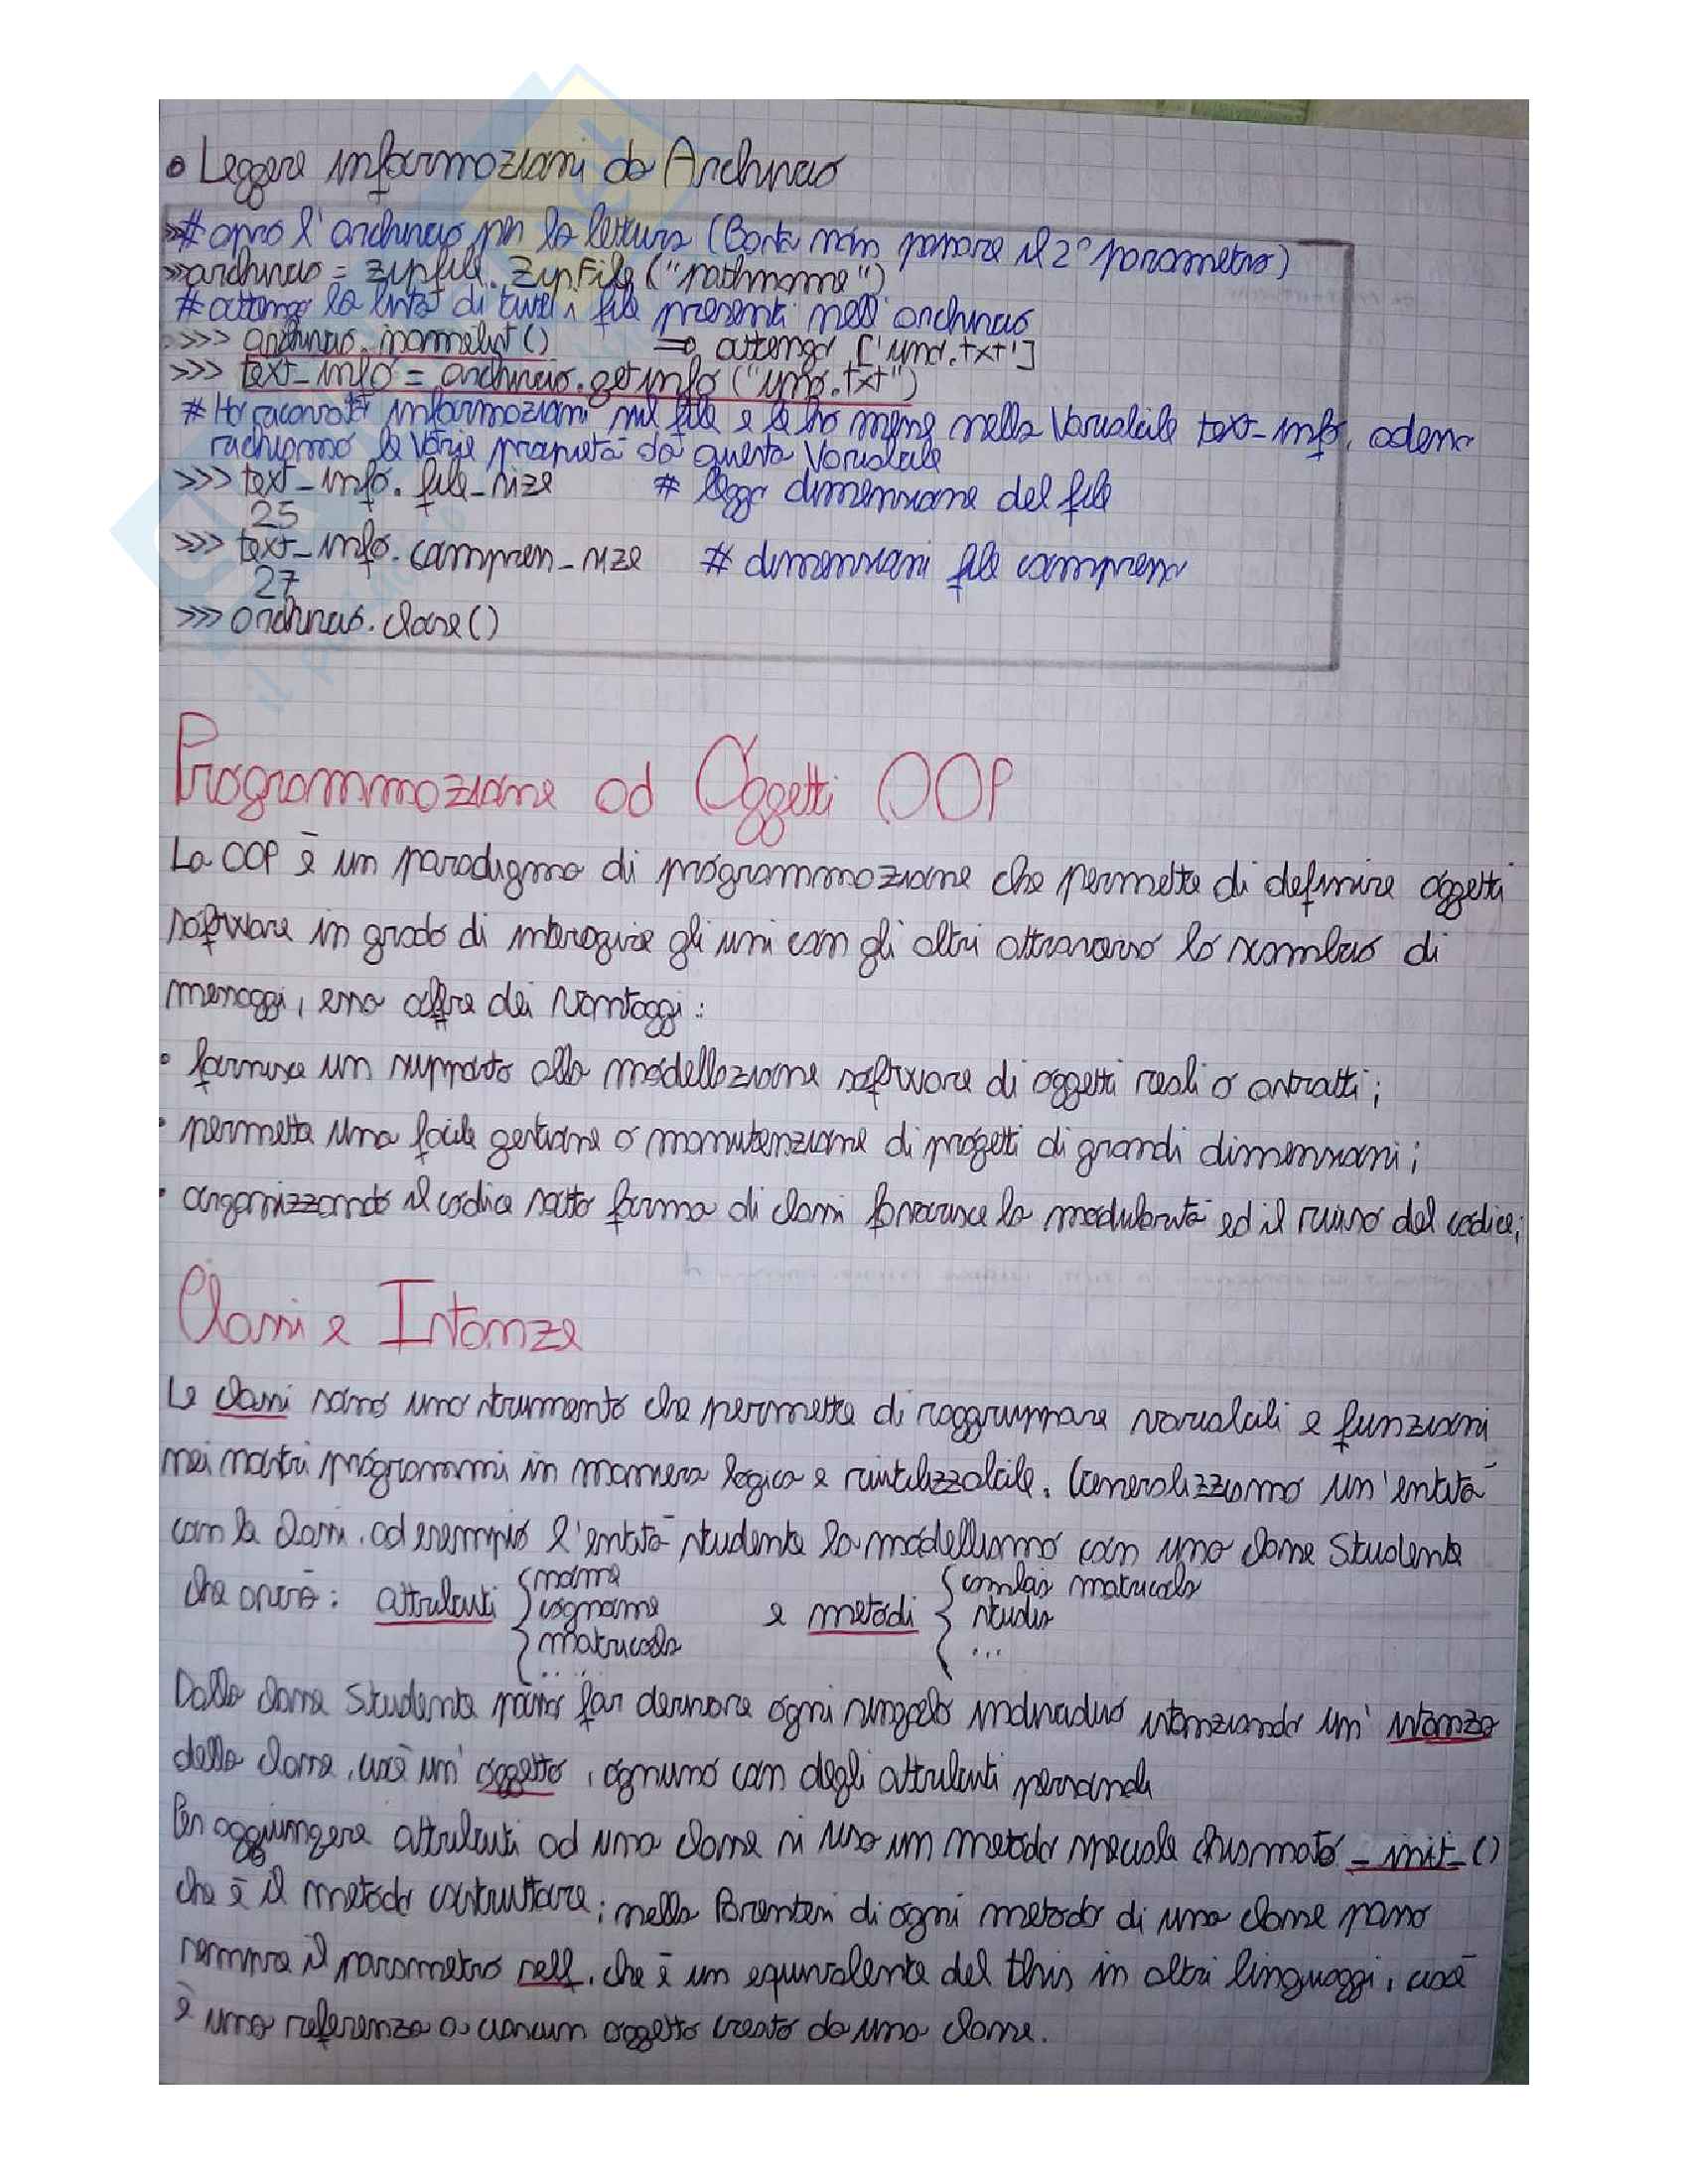 • Leggere informazioni da Archivio
>># apro l'archivio per la lettura (Basta non passare il 2° parametro)
>>>archivio = zipfile.ZipFile("pathname")
# ottengo la lista di tutti i file presenti nell'archivio
>>> archivio.namelist() => ottengo ['uno.txt']
>>> text_info = archivio.getinfo("uno.txt")
# Ho raccolto informazioni sul file e le ho messe nella Variabile text_info, adesso
richiamo le varie proprietà da questa Variabile
>>> text_info.file_size # leggo dimensione del file
25
>>> text_info.compress_size # dimensioni file compresso
27
>>> archivio.close()
Programmazione ad Oggetti OOP
La OOP è un paradigma di programmazione che permette di definire oggetti
software in grado di interagire gli uni con gli altri attraverso lo scambio di
messaggi, essa offre dei vantaggi:
• fornisce un supporto alla modellazione software di oggetti reali o astratti;
• permette una facile gestione o manutenzione di progetti di grandi dimensioni;
• organizzando il codice sotto forma di classi favorisce la modularità ed il riuso del codice;
Classi e Istanze
Le classi sono uno strumento che permette di raggruppare variabili e funzioni
nei nostri programmi in maniera logica e riutilizzabile. Generalizziamo un'entità
con le classi, ad esempio l'entità studente la modelliamo con una classe Studente
che avrà: attributi { nome e metodi { cambio matricola
cognome studio
matricola ...
...
Dalla classe Studente posso far derivare ogni singolo individuo istanziando un'istanza
della classe, cioè un' oggetto, ognuno con degli attributi personali
Per aggiungere attributi ad una classe si usa un metodo speciale chiamato _init_()
che è il metodo costruttore; nella Parentesi di ogni metodo di una classe passo
sempre il parametro self, che è un equivalente del this in altri linguaggi, cioè
è una referenza a ciascun oggetto creato da una classe.